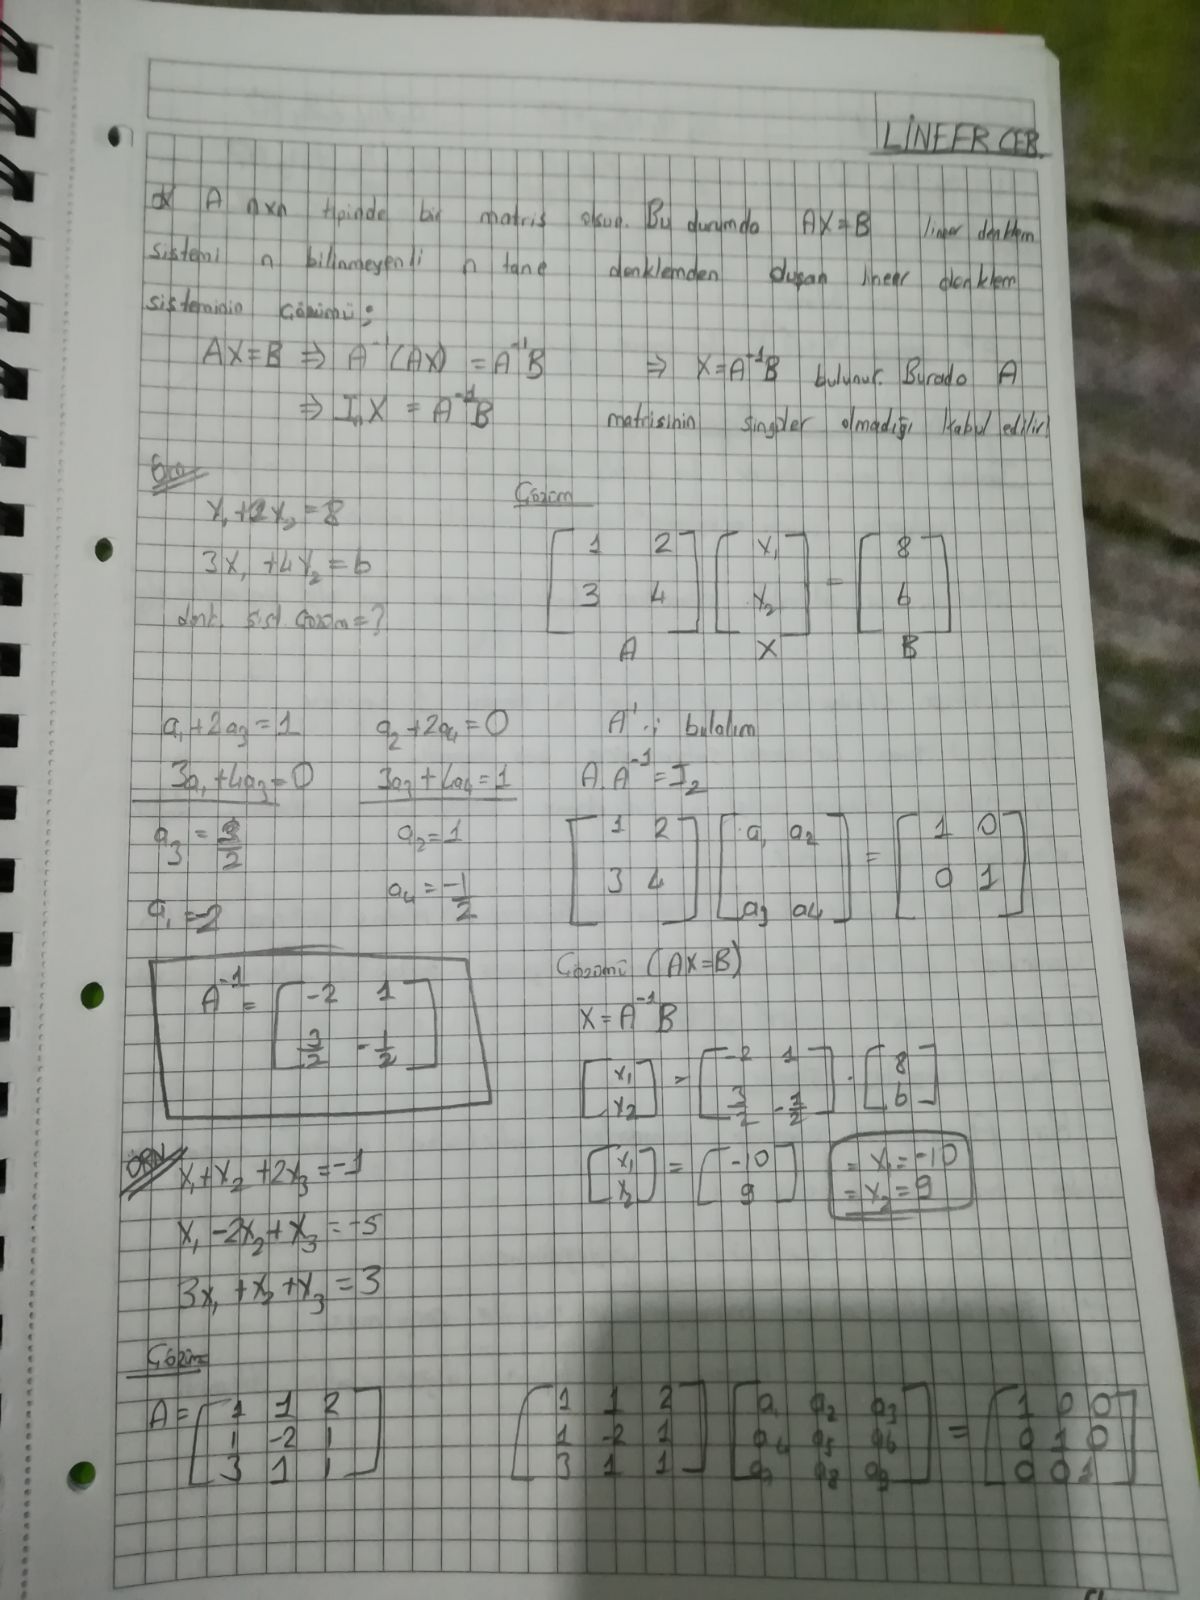 LİNEER CEB.
A nxn tipinde bir matris olsun. Bu durumda AX=B lineer denklem
sistemi n bilinmeyenli n tane denklemden oluşan lineer denklem
sisteminin çözümü;
AX=B ⇒ A⁻¹(AX) = A⁻¹B ⇒ X=A⁻¹B bulunur. Burada A
⇒ IₙX = A⁻¹B matrisinin singüler olmadığı kabul edilir)
x₁+2x₂=8
3x₁+4x₂=6
denk. sist. çözüm=?
Çözüm
[1 2] [x₁] = [8]
[3 4] [x₂] [6]
A X B
a₁+2a₃=1 a₂+2a₄=0
3a₁+4a₃=0 3a₃+4a₄=1
a₃=3/2 a₂=1
a₁=-2 a₄=-1/2
A⁻¹'i bulalım
A.A⁻¹=I₂
[1 2] [a₁ a₂] = [1 0]
[3 4] [a₃ a₄] [0 1]
A⁻¹= [-2 1]
[3/2 -1/2]
Çözümü (AX=B)
X=A⁻¹B
[x₁] = [-2 1] . [8]
[x₂] [3/2 -1/2] [6]
[x₁] = [-10]
[x₂] [9]
= x₁=-10
= x₂=9
ÖRN
x₁+x₂+2x₃=-1
x₁-2x₂+x₃=-5
3x₁+x₂+x₃=3
Çözüm
A= [1 1 2]
[1 -2 1]
[3 1 1]
[1 1 2] [a₁ a₂ a₃] = [1 0 0]
[1 -2 1] [a₄ a₅ a₆] [0 1 0]
[3 1 1] [a₇ a₈ a₉] [0 0 1]